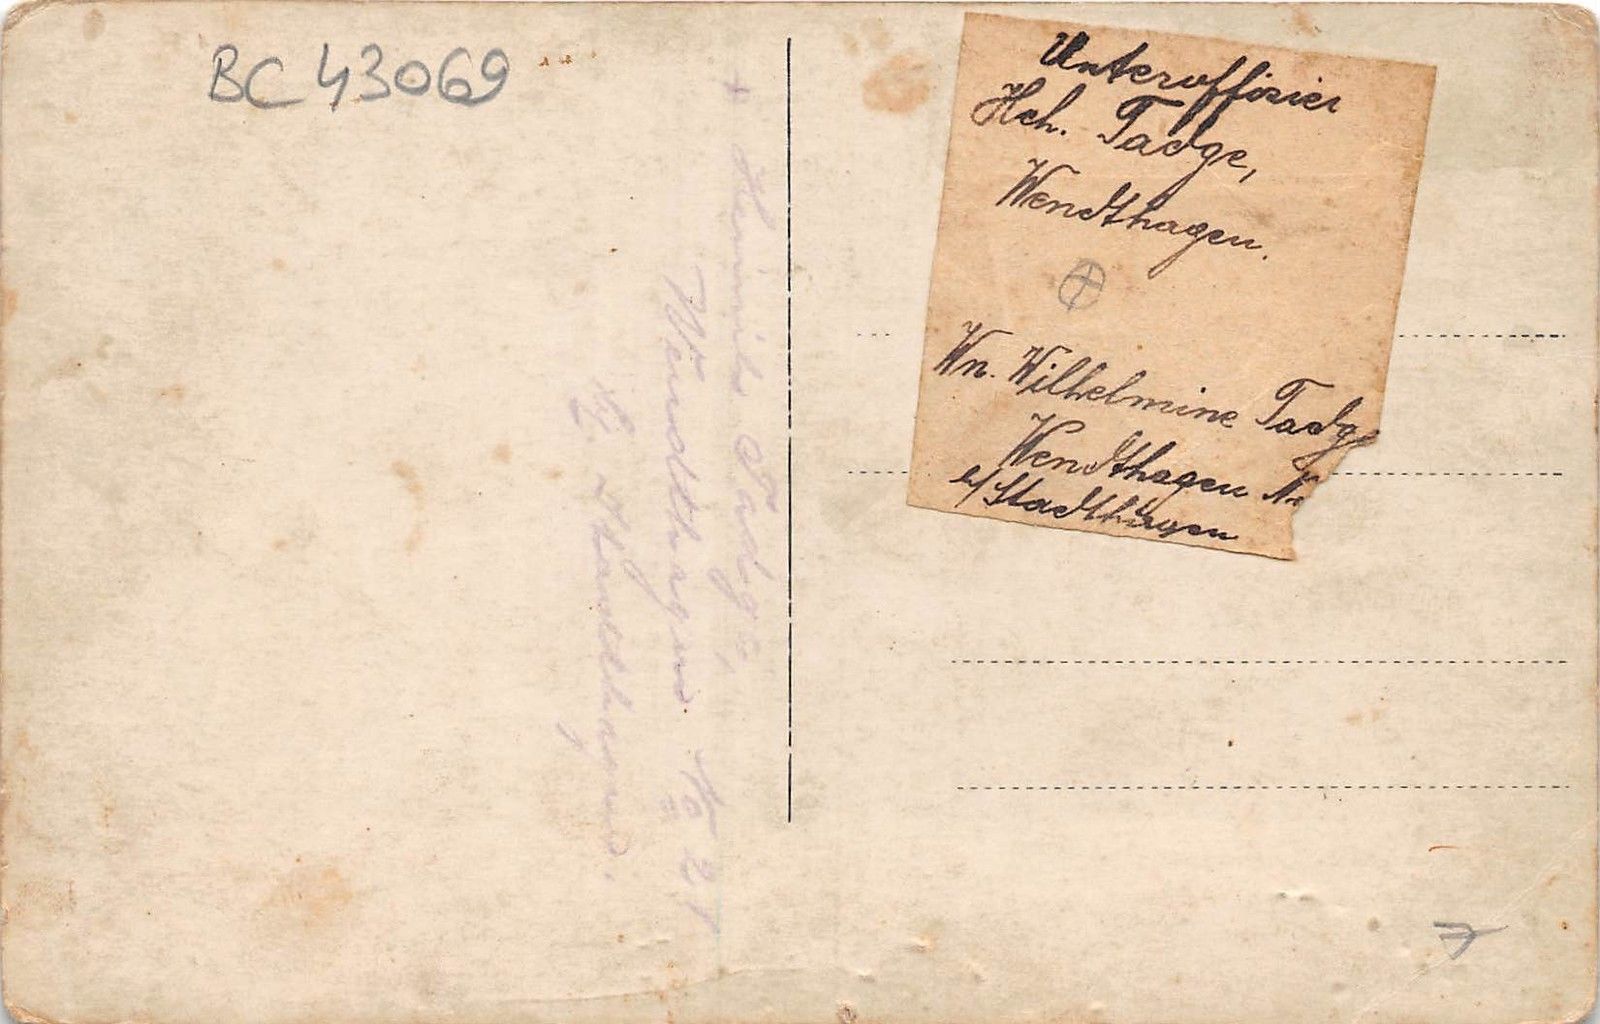 BC 43069
+ Heinrich Tadge,
Wendthagen No 21
b. Stadthagen.
Unteroffizier
Hch. Tadge,
Wendthagen.
Wn. Wilhelmine Tadge
Wendthagen Nr
b/Stadthagen
7